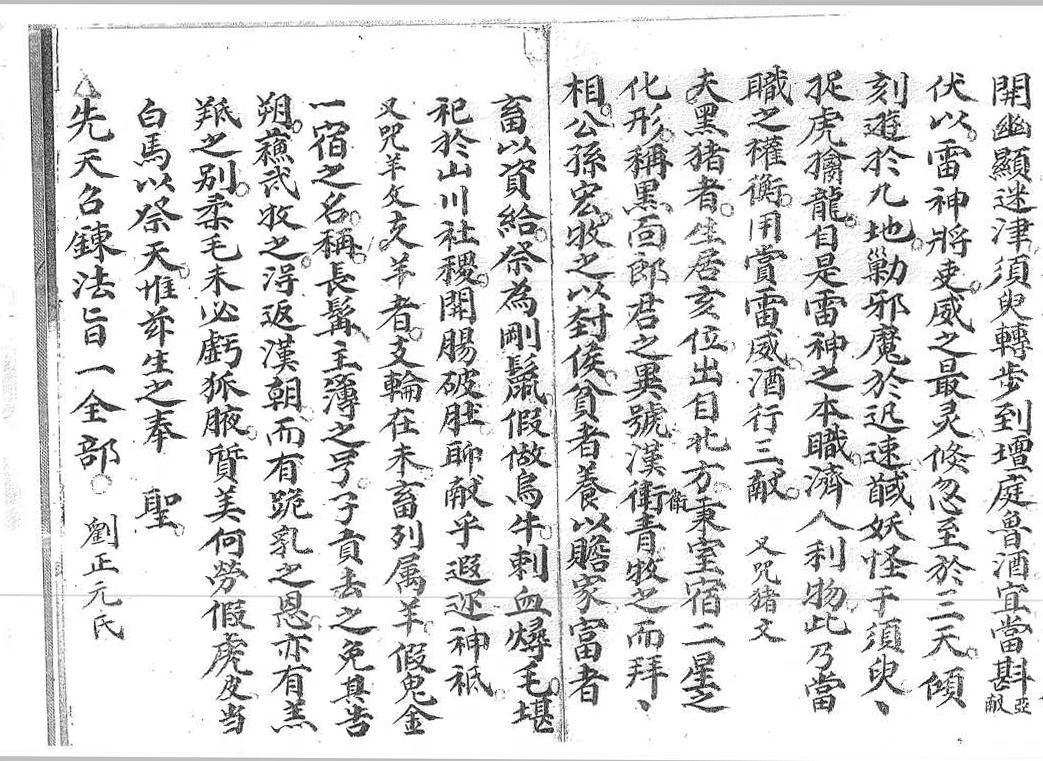 開幽顯迷津須臾轉步到壇庭魯酒宜當斟亞献
伏以雷神將吏威之最灵倐忽至於三天傾
刻遊於九地勦邪魔於迅速馘妖怪于須臾、
捉虎擒龍自是雷神之本職濟人利物此乃當
職之權衡用賞雷威酒行三献 又咒猪文
夫黑猪者生居亥位出自北方稟室宿二星之
化形稱黒面郎君之異號漢衛青牧之而拜、
相公孫宏牧之以封侯貧者養以贍家富者
畜以資給祭為剛鬣假做烏牛刺血燖毛堪
祀於山川社稷開腸破肚聊献乎遐迩神祇
又咒羊文夫羊者支輪在未畜列属羊假鬼金
一宿之名稱長髯主薄之号子貢去之免其告
朔蘓武牧之淂返漢朝而有跪乳之恩亦有羔
羝之别柔毛未必虧狐腋質美何勞假虎皮当
白馬以祭天惟茲生之奉 聖
先天召錬法旨一全部 劉正元氏